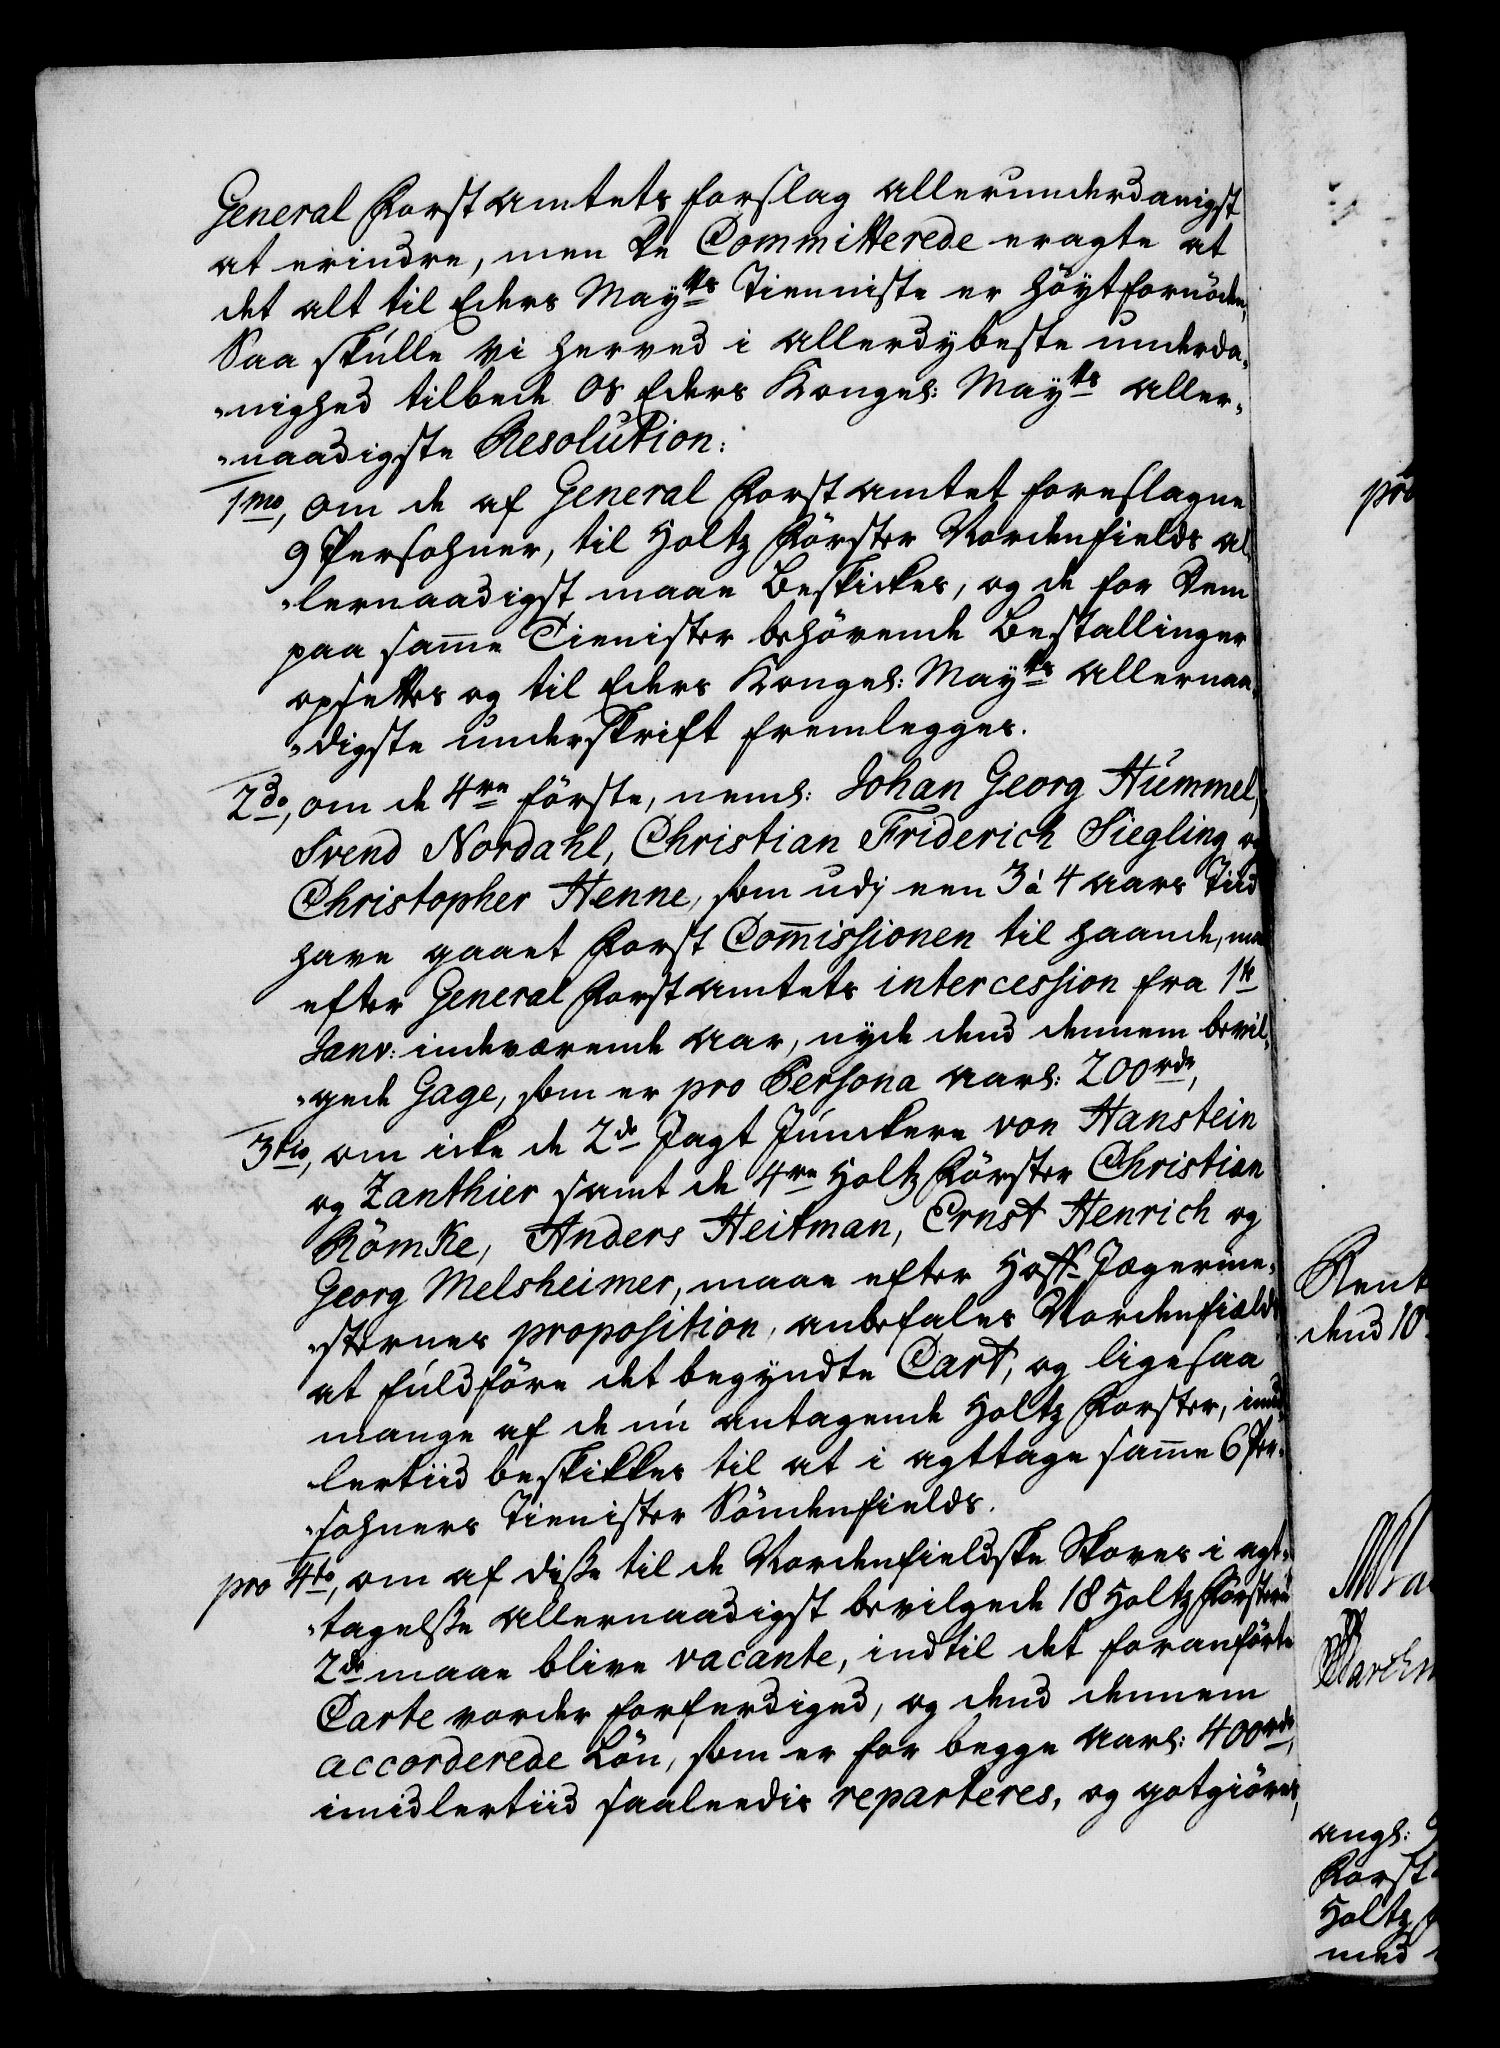 General Forst amtets forslag allerunderdanigst
at erindre, men de Committerede eragte at
det alt til Eders Maytts Tienniste er höyt fornöden,
Saa skulle Vi herved i allerdybeste underda-
-nighed tilbede os Eders Kongel: Maytts aller-
-naadigste Resolution:
1mo, om de af General Forst amtet foreslagne
9 Persohner, til Holtz Förster Nordenfields al-
-lernaadigst maae Beskickes, og de for dem
paa same Tienister behörende Bestallinger
opsettes og til Eders Kongel: Maytts allernaa-
-digste underskrift fremlegges.
2do, om de 4re förste, neml: Johan Georg Hummel,
Svend Nordahl, Christian Friderich Siegling og
Christopher Henne, som udj een 3 à 4 aars Tiid
have gaaet Forst Comissionen til haande, maae
efter General Forst amtets intercession fra 1te
Janv: indeværende aar, nyde dend dennem bevil-
-gede Gage, som er pro Persona aarl: 200 rdr,
3tio, om icke de 2de Jagt Junckere von Hanstein
og Zanthier samt de 4re Holtz Förster Christian
Römke, Anders Heitman, Ernst Henrich og
Georg Melsheimer, maae efter Hoff Jægerme-
-sternes proposition, anbefales Nordenfields
at fuldföre det begyndte Cart, og ligesaa
mange af de nu antagende Holtz Forster, imid-
lertiid beskikkes til at i agttage same 6 Per-
-sohners Tienister Söndenfields.
pro 4to, om af disse til de Nordenfieldske Skoves i agt-
-tagelsse allernaadigst bevilgede 18 Holtz Förstere
2de maae blive vacante, indtil det foranförte
Carte vorder forferdiged, og dend dennem
accorderede Lön, som er for begge aarl: 400 rdr,
imidlertiid saaleedis reparteres, og gotgiöres,
pro
Rent
dend 10
angl:
Forst
Holtz
med